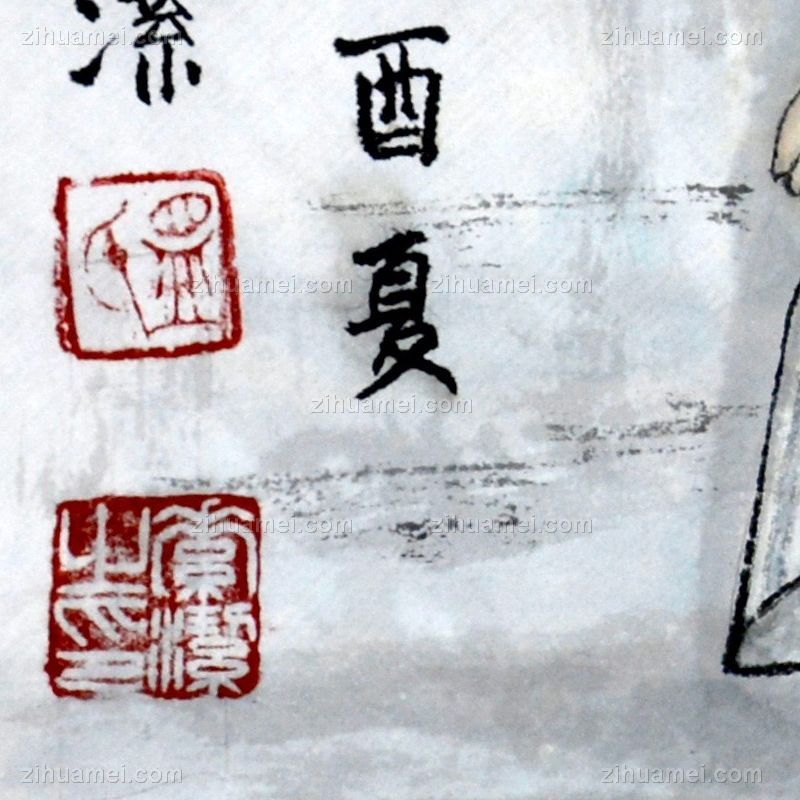 酉夏
潔
之印
zihuamei.com
zihuamei.com
zihuamei.com
zihuamei.com
zihuamei.com
zihuamei.com
zihuamei.com
zihuamei.com
zihuamei.com